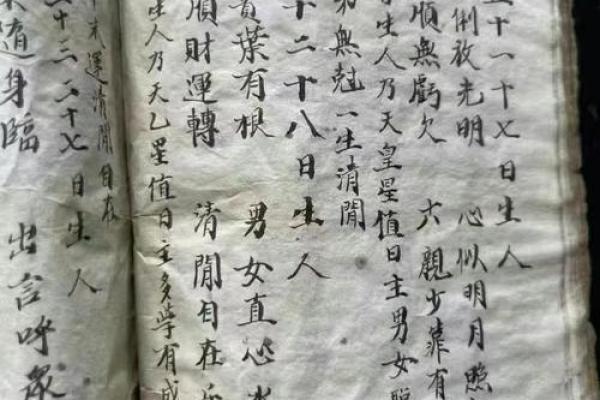 十一十七日生人
俐放光明 心似明月照
順無虧欠 六親少靠有
生人乃天皇星值日主男女
無尅一生清閒
十二十八日生人
葉有根 男女直心
順財運轉 清閒自在
生人乃天乙星值日主多学有成
末運清閒自在
十三二十七日生人
隨身臨 出言呼眾